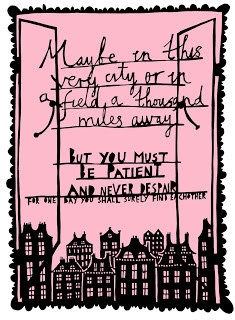 Maybe in this
very city or in
a field a thousand
miles away
BUT YOU MUST
BE PATIENT
AND NEVER DESPAIR
FOR ONE DAY YOU SHALL SURELY FIND EACHOTHER